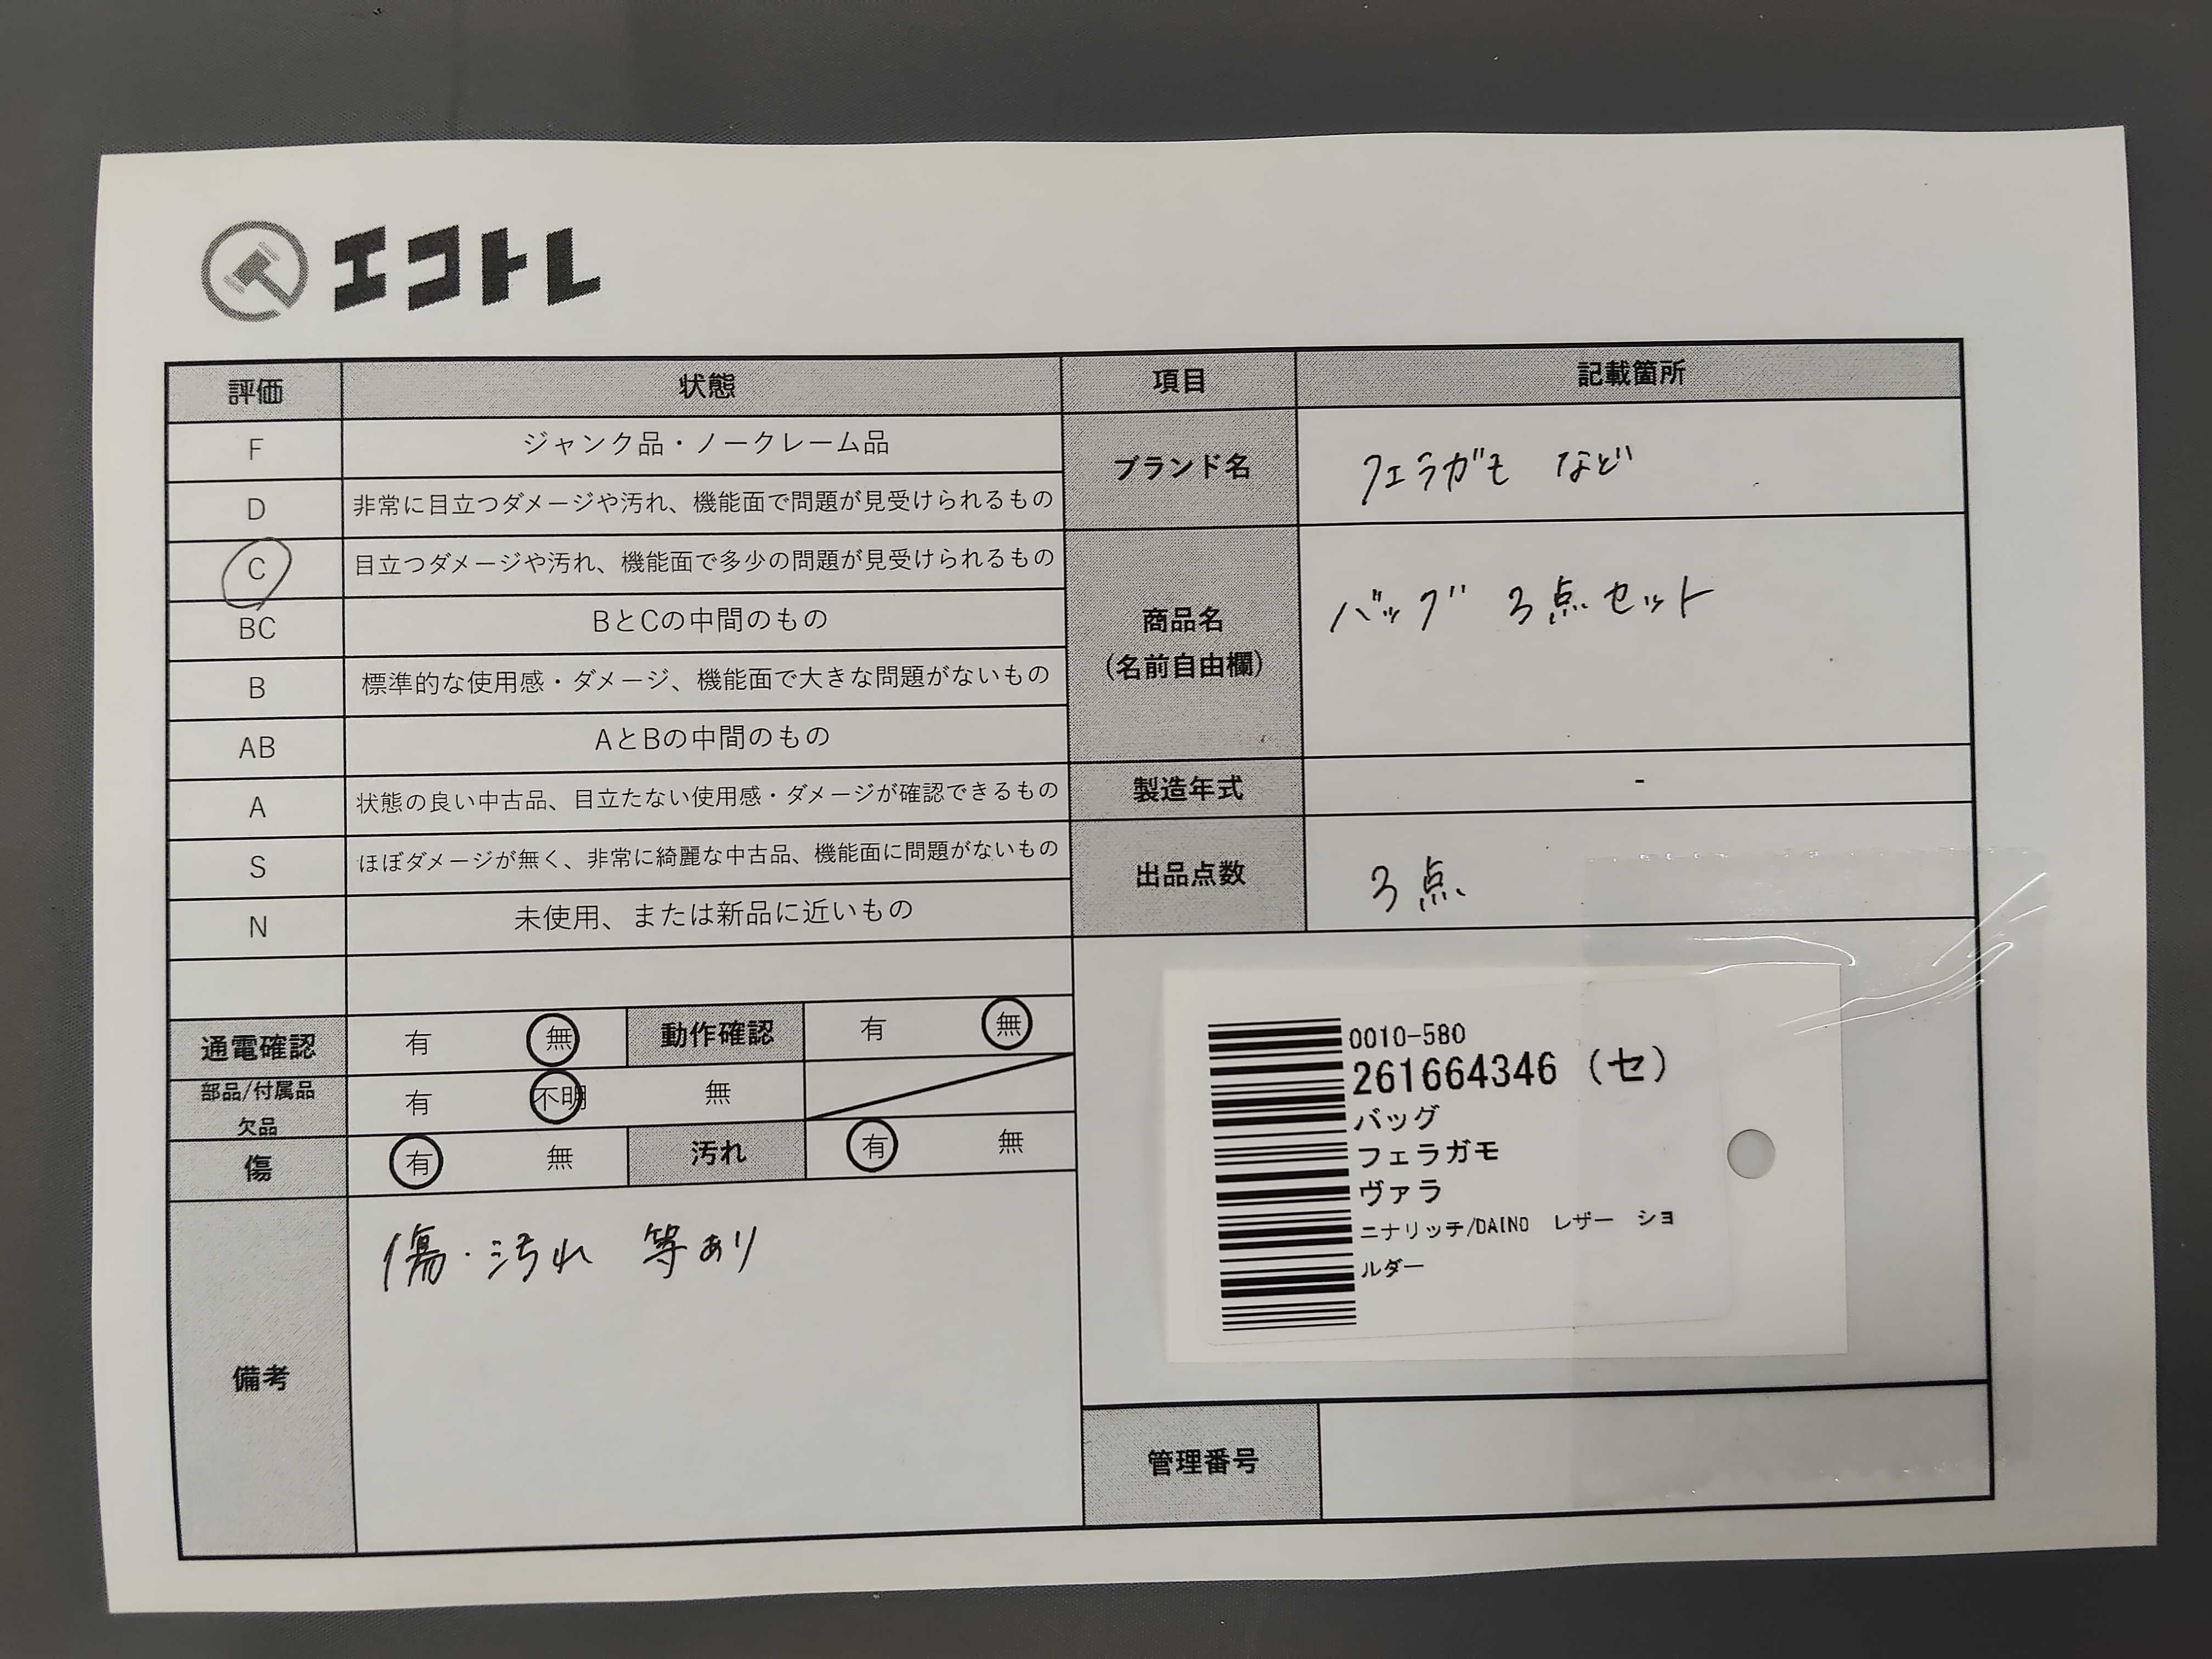 エコトレ
評価 状態 項目 記載箇所
F ジャンク品・ノークレーム品
D 非常に目立つダメージや汚れ、機能面で問題が見受けられるもの
C 目立つダメージや汚れ、機能面で多少の問題が見受けられるもの
BC BとCの中間のもの
B 標準的な使用感・ダメージ、機能面で大きな問題がないもの
AB AとBの中間のもの
A 状態の良い中古品、目立たない使用感・ダメージが確認できるもの
S ほぼダメージが無く、非常に綺麗な中古品、機能面に問題がないもの
N 未使用、または新品に近いもの
ブランド名 フェラガモ など
商品名
(名前自由欄)
バッグ 3点セット
製造年式 -
出品点数 3点
通電確認 有 無 動作確認 有 無
部品/付属品
欠品
有 不明 無
傷 有 無 汚れ 有 無
備考
傷・汚れ 等あり
0010-580
261664346 (セ)
バッグ
フェラガモ
ヴァラ
ニナリッチ/DAINO レザー ショ
ルダー
管理番号